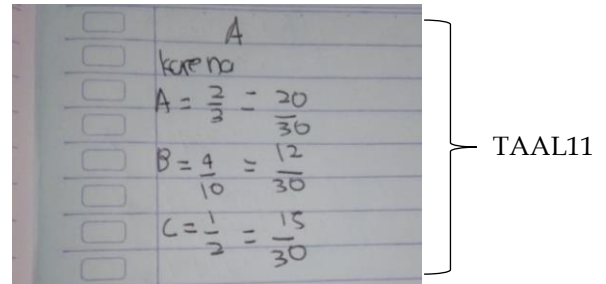 A
karena
A = 2/3 = 20/30
B = 4/10 = 12/30
C = 1/2 = 15/30
TAAL11